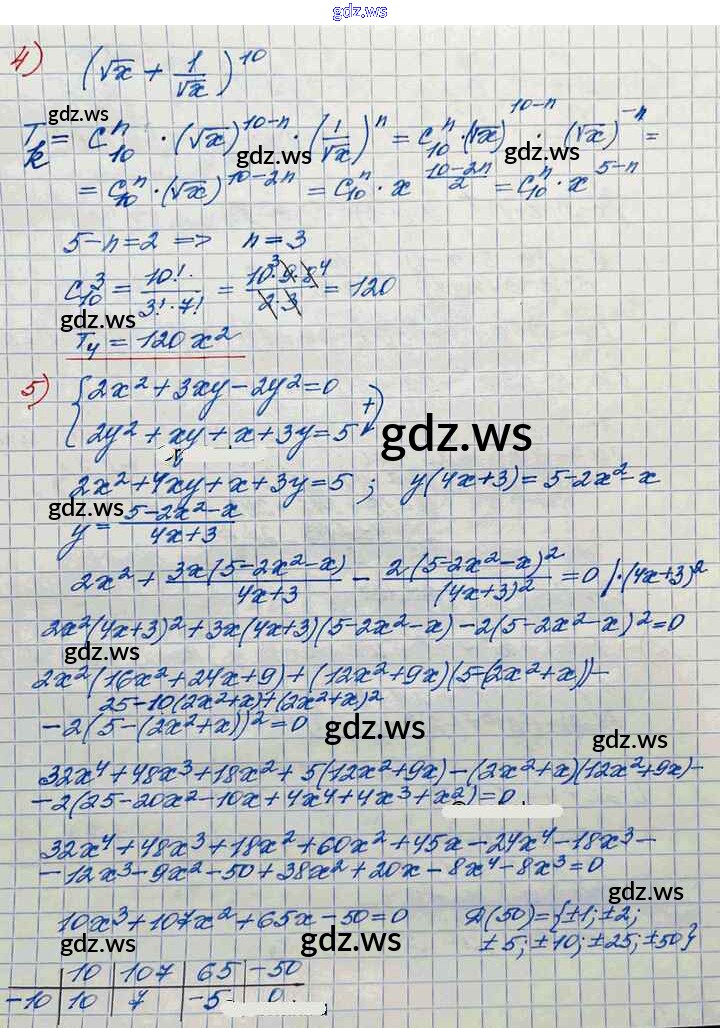 gdz.ws
4) (√x + 1/√x)^10
gdz.ws
T_k = C_10^n · (√x)^(10-n) · (1/√x)^n = C_10^n · (√x)^(10-n) · (√x)^(-n) =
gdz.ws gdz.ws
= C_10^n · (√x)^(10-2n) = C_10^n · x^((10-2n)/2) = C_10^n · x^(5-n)
5-n=2 => n=3
C_10^3 = 10!/(3!·7!) = (10·9³·8⁴)/(2·3) = 120
gdz.ws
T_4 = 120x²
5) { 2x²+3xy-2y²=0
2y²+xy+x+3y=5 } +
gdz.ws
2x²+4xy+x+3y=5 ; y(4x+3)=5-2x²-x
gdz.ws
y = (5-2x²-x)/(4x+3)
2x² + 3x(5-2x²-x)/(4x+3) - 2(5-2x²-x)²/(4x+3)² = 0 /·(4x+3)²
2x²(4x+3)²+3x(4x+3)(5-2x²-x)-2(5-2x²-x)²=0
gdz.ws
2x²(16x²+24x+9)+(12x²+9x)(5-(2x²+x))-
25-10(2x²+x)+(2x²+x)²
-2(5-(2x²+x))²=0
gdz.ws
gdz.ws
32x⁴+48x³+18x²+5(12x²+9x)-(2x²+x)(12x²+9x)-
-2(25-20x²-10x+4x⁴+4x³+x²)=0
32x⁴+48x³+18x²+60x²+45x-24x⁴-18x³-
-12x³-9x²-50+38x²+20x-8x⁴-8x³=0
gdz.ws
10x³+107x²+65x-50=0 Д(50)={±1;±2;
±5;±10;±25;±50}
gdz.ws gdz.ws
10 107 65 -50
-10 10 7 -5 0
gdz.ws